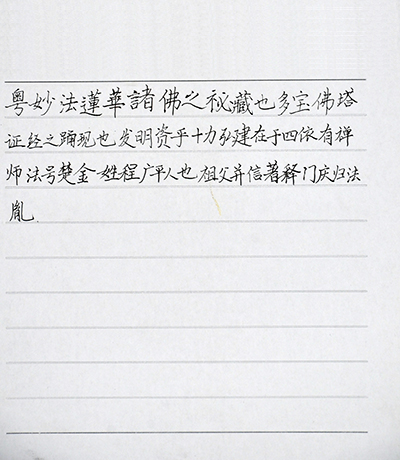 粤妙法蓮華諸佛之祕藏也多宝佛塔
证经之踊现也发明资乎十力弘建在于四依有禅
师法号楚金姓程广平人也祖父并信著释门庆归法
胤